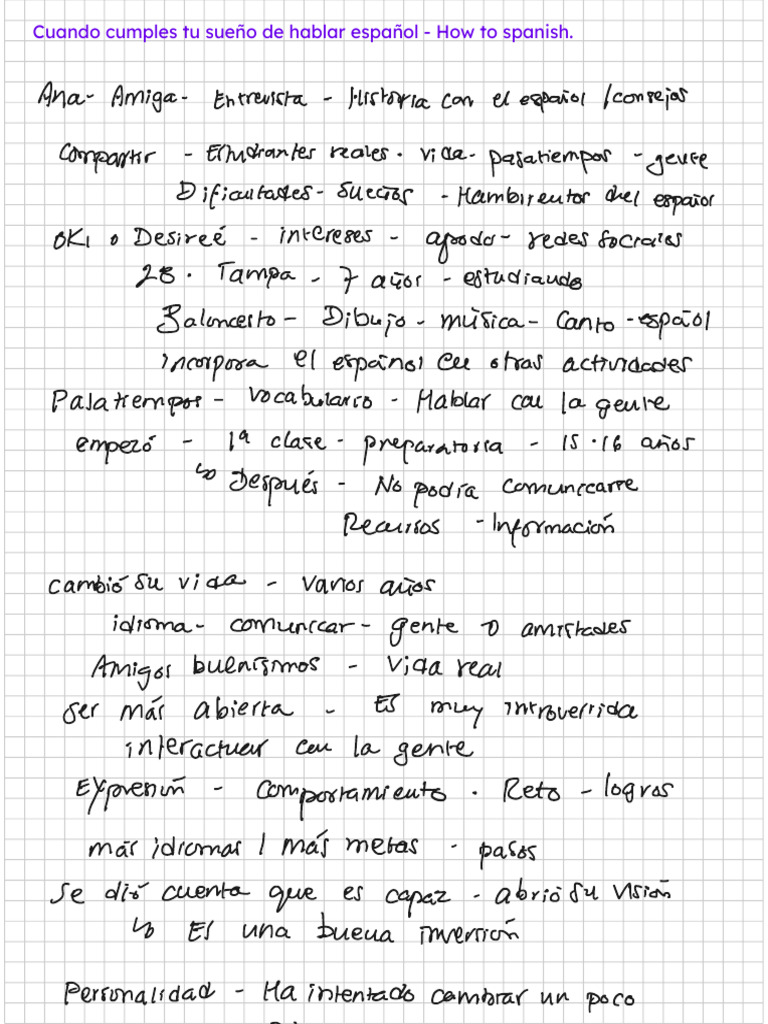 Cuando cumples tu sueño de hablar español - How to spanish.
Ana - Amiga - Entrevista - Historia con el español / consejos
Compartir - Estudiantes reales. vida - pasatiempos - gente
Dificultades - sueños - Hambrientos del español
OKI o Desireé - intereses - apodo - redes sociales
28. Tampa - 7 años - estudiando
Baloncesto - Dibujo - música - Canto - español
incorpora el español en otras actividades
Pasatiempos - Vocabulario - Hablar con la gente
empezó - 1ª clase - preparatoria - 15 - 16 años
↳ Después - No podía comunicarse
Recursos - Información
cambió su vida - varios años
idioma - comunicar - gente o amistades
Amigos buenísimos - vida real
ser más abierta - Es muy introvertida
interactuar con la gente
Expresión - comportamiento. Reto - logros
más idiomas / más metas - pasos
Se dió cuenta que es capaz - abrió su visión
↳ Es una buena inversión
Personalidad - Ha intentado cambiar un poco